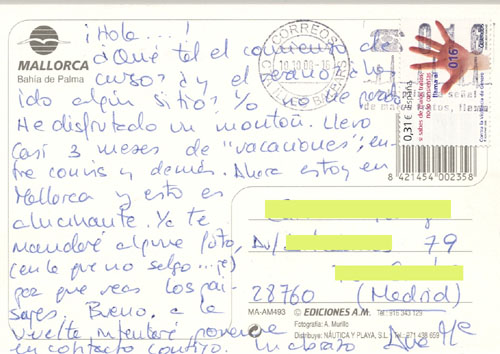 MALLORCA
Bahía de Palma
¡Hola...!
¿Qué tal el comienzo de
curso? ¿y el verano? ¿has
ido algún sitio? Yo no he parado
He disfrutado un montón. Llevo
casi 3 meses de "vacaciones", en-
tre convis y demás. Ahora estoy en
Mallorca y esto es
alucinante. Ya te
mandaré alguna foto,
(en la que no salgo...je)
para que veas los pai-
sajes. Bueno, a la
vuelta intentaré ponerme
en contacto contigo.
Un abrazo Ana Mª
CORREOS
10.10.08
BALEARS
0,31€ ESPAÑA
016
8 421454 002358
79
28760 (Madrid)
MA-AM493
© EDICIONES A.M. Tel.: 916 343 129
Fotografía: A. Murillo
Distribuye: NÁUTICA Y PLAYA, S.L. Tel.: 971 438 659